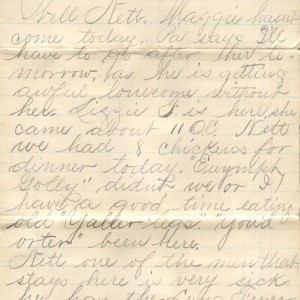 Well Nett. Maggie hasn't
come today. Pa says I'll
have to go after her to-
morrow, as he is getting
awful lonesome without
her. Lizzie J is here, she
came about 11 O.C. Nett
we had 8 chickens for
dinner today.
Golly" didn't we or I
have a good time eating
old "Yaller legs." "you'd
orter" been here.
Nett one of the men that
stays here is very sick